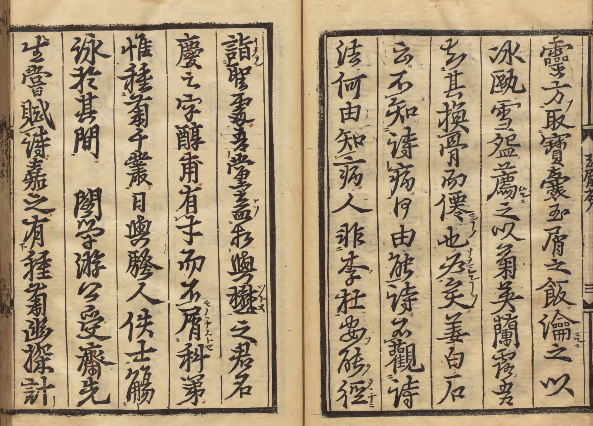 靈方取寶囊玉屑之飯瀹之以
冰甌雪盌薦之以菊英蘭露吾
知其換骨而僊也必矣姜白石
云不知詩病何由能詩不觀詩
法何由知病人非李杜安能徑
詣聖處吾黨盍相與懋之君名
慶之字醇甫有才而不屑科第
惟種菊千叢日與騷人佚士觴
詠於其間 閣學游公受齋先
生嘗賦詩嘉之有種菊幽探計